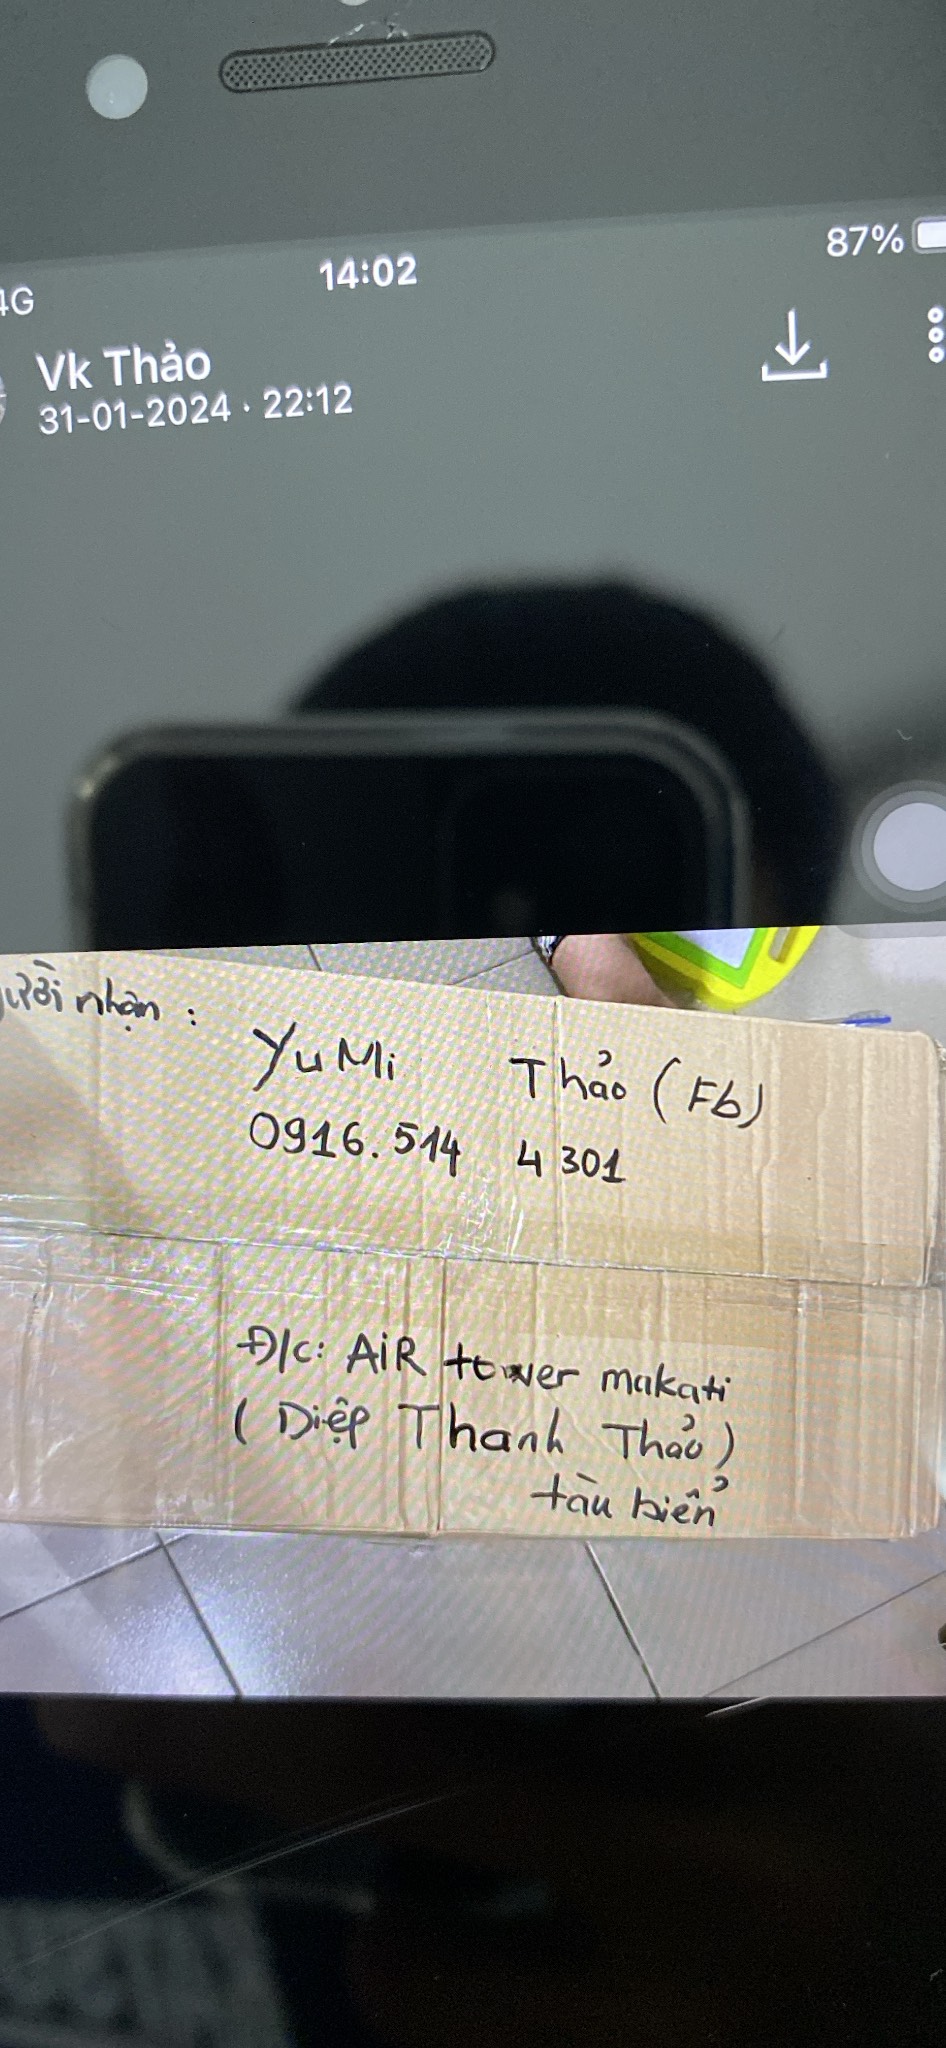 4G 14:02 87%
Vk Thảo
31-01-2024 · 22:12
nhận :
YuMi Thảo (Fb)
0916.514 4301
Đ/c: AiR tower makati
(Diệp Thanh Thảo)
tàu biển